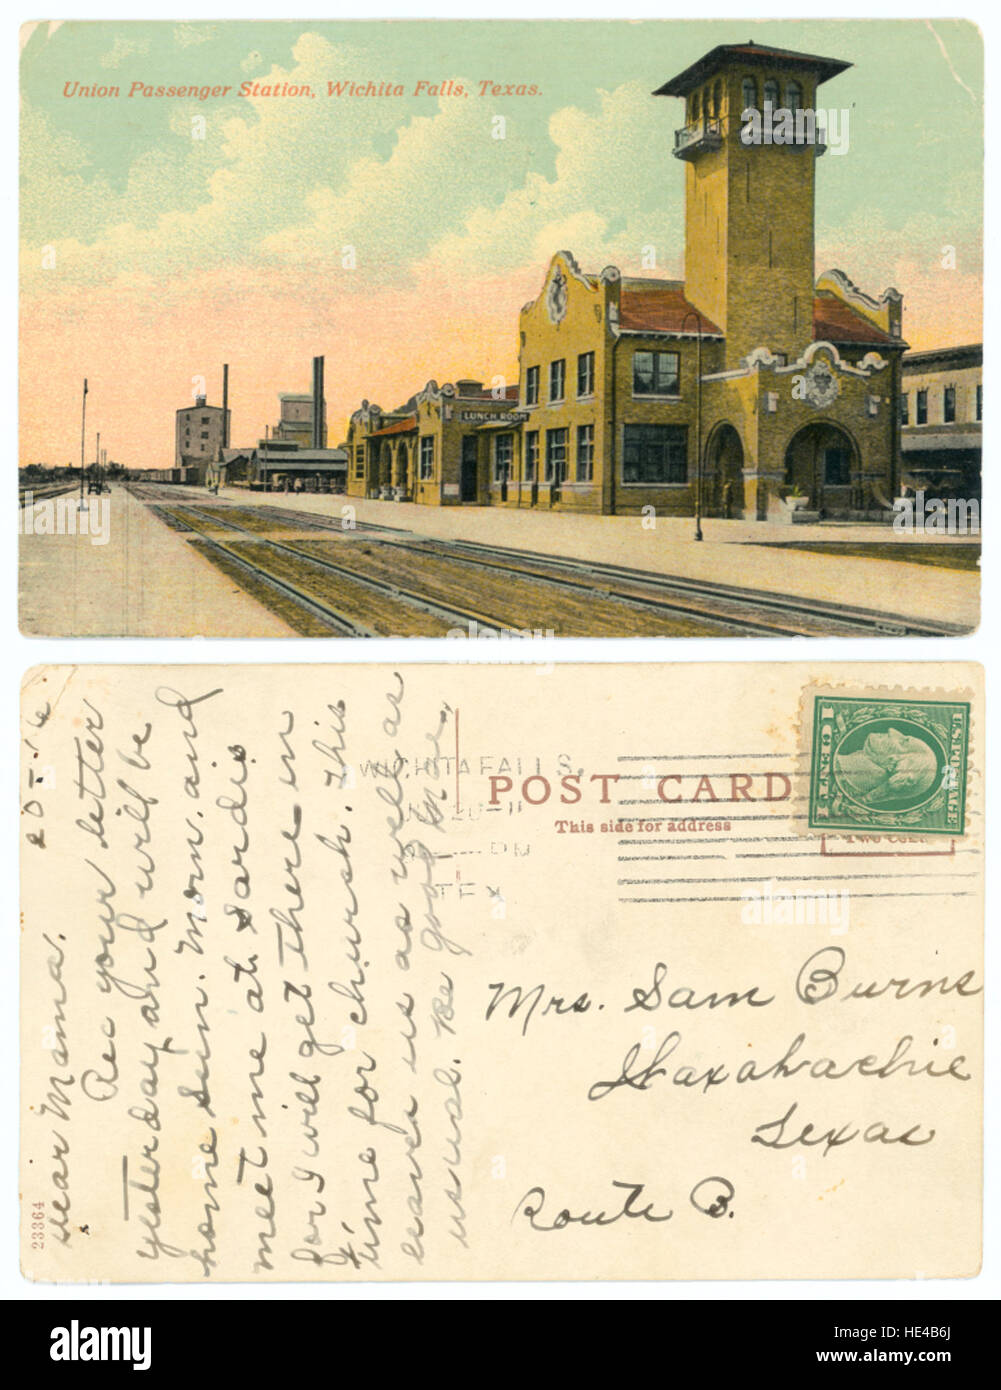 Union Passenger Station, Wichita Falls, Texas.
LUNCH ROOM
20-16
Dear Mama.
Rec your letter
yesterday and will be
home Sun. Morn. and
meet me at Sardis
for I will get there in
time for church. This
leaves us as well as
usual. Be good
23364
WICHITA FALLS,
TEX
POST CARD
This side for address
U.S. POSTAGE
1 CENT 1
Mrs. Sam Burns
Waxahachie
Texas
Route 3.
alamy
alamy
alamy
Image ID: HE4B6J
www.alamy.com